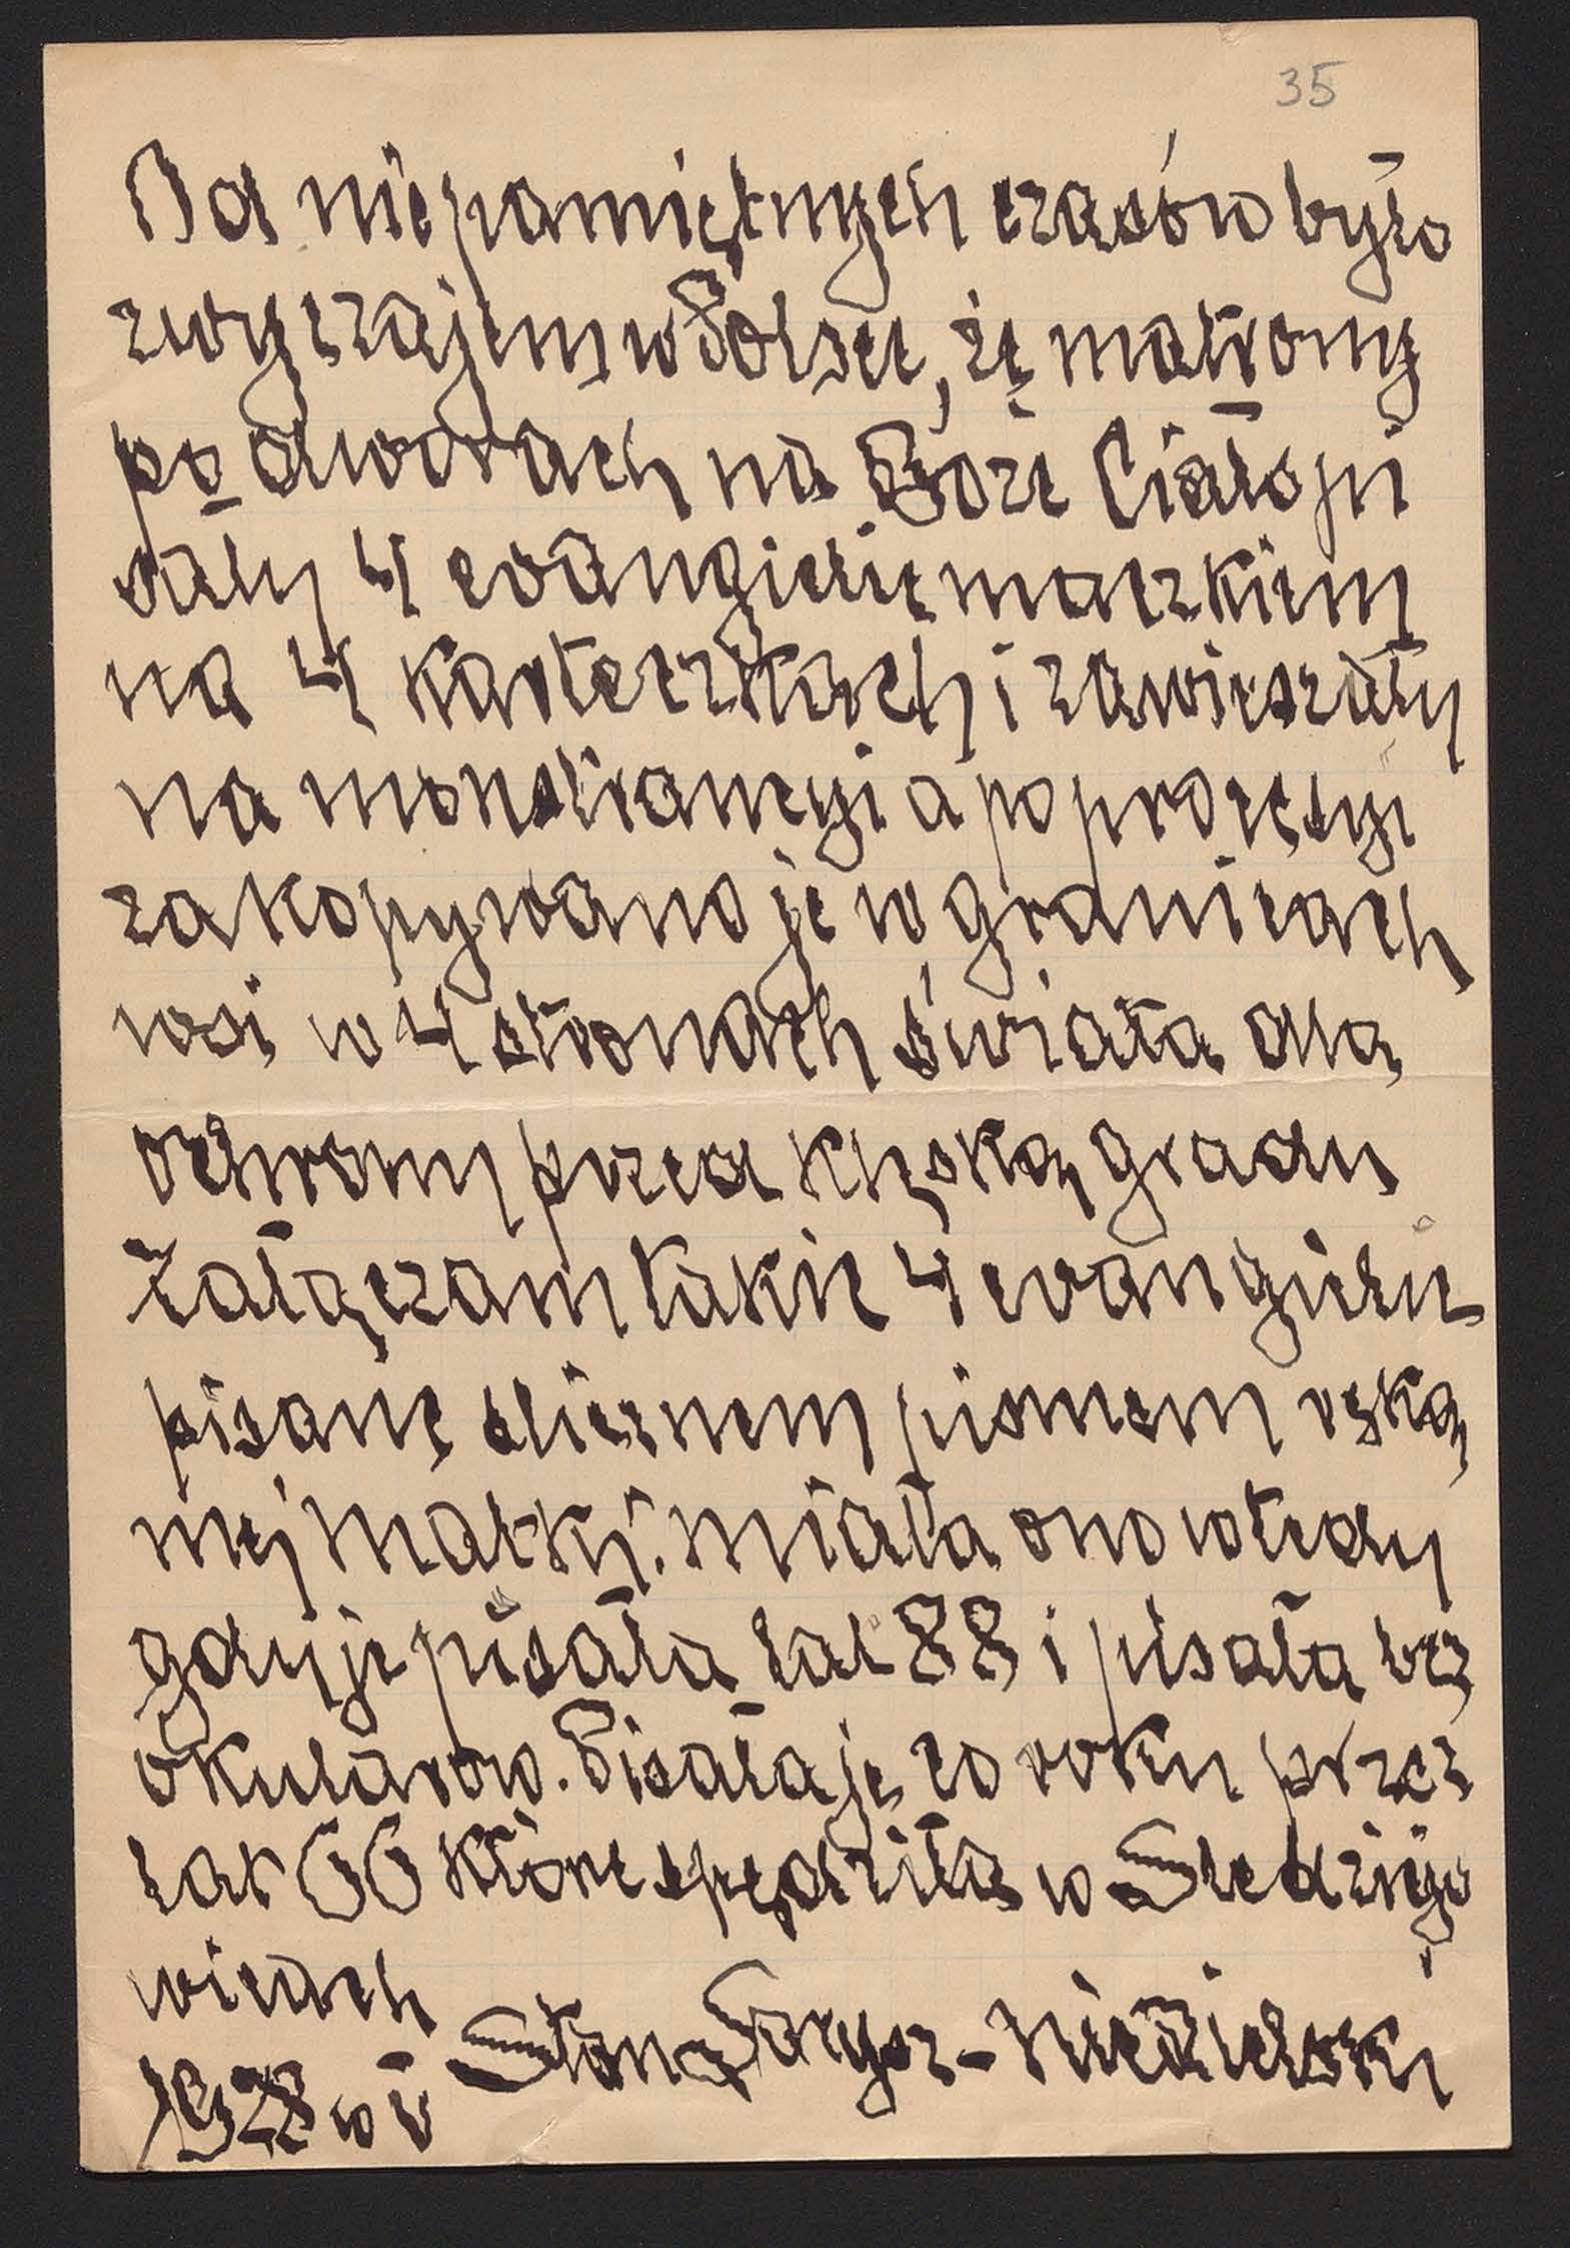 35
Od niepamiętnych czasów było
zwyczajem w Polsce, że matrony
po dworach na Boże Ciało pi
sały 4 ewangielie maczkiem
na 4 karteczkach i zawieszały
na monstrancyi a po procesyi
zakopywano je w granicach
wsi w 4 stronach świata dla
ochrony przed klęską gradu
Załączam takie 4 ewangielie
pisane ślicznem pismem ręką
mej matki. miała ona wtedy
gdy je pisała lat 88 i pisała bez
okularów. Pisała je co roku przez
lat 66 które spędziła w Śledziejo
wicach
Stan Larysz-Niedzielski
1928 w V